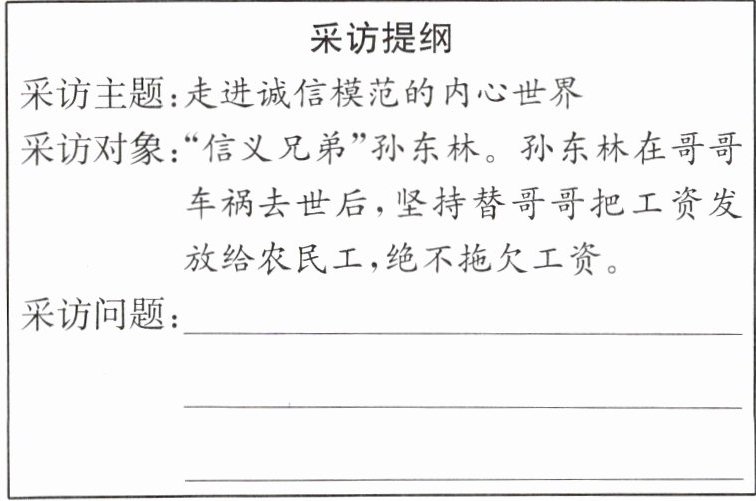 采访提纲
采访主题:走进诚信模范的内心世界
采访对象:“信义兄弟”孙东林。孙东林在哥哥
车祸去世后,坚持替哥哥把工资发
放给农民工,绝不拖欠工资。
采访问题: